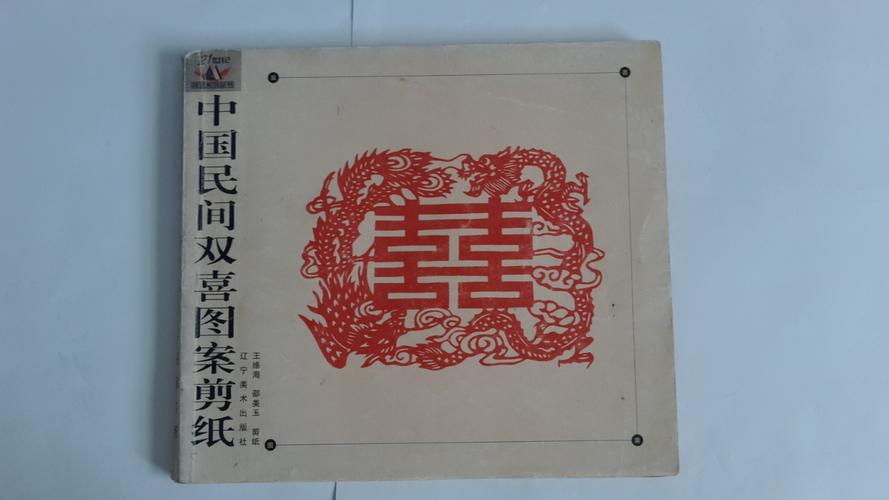 21世纪
中国民间双喜图案剪纸
王维海 邵美玉 剪纸
辽宁美术出版社
囍